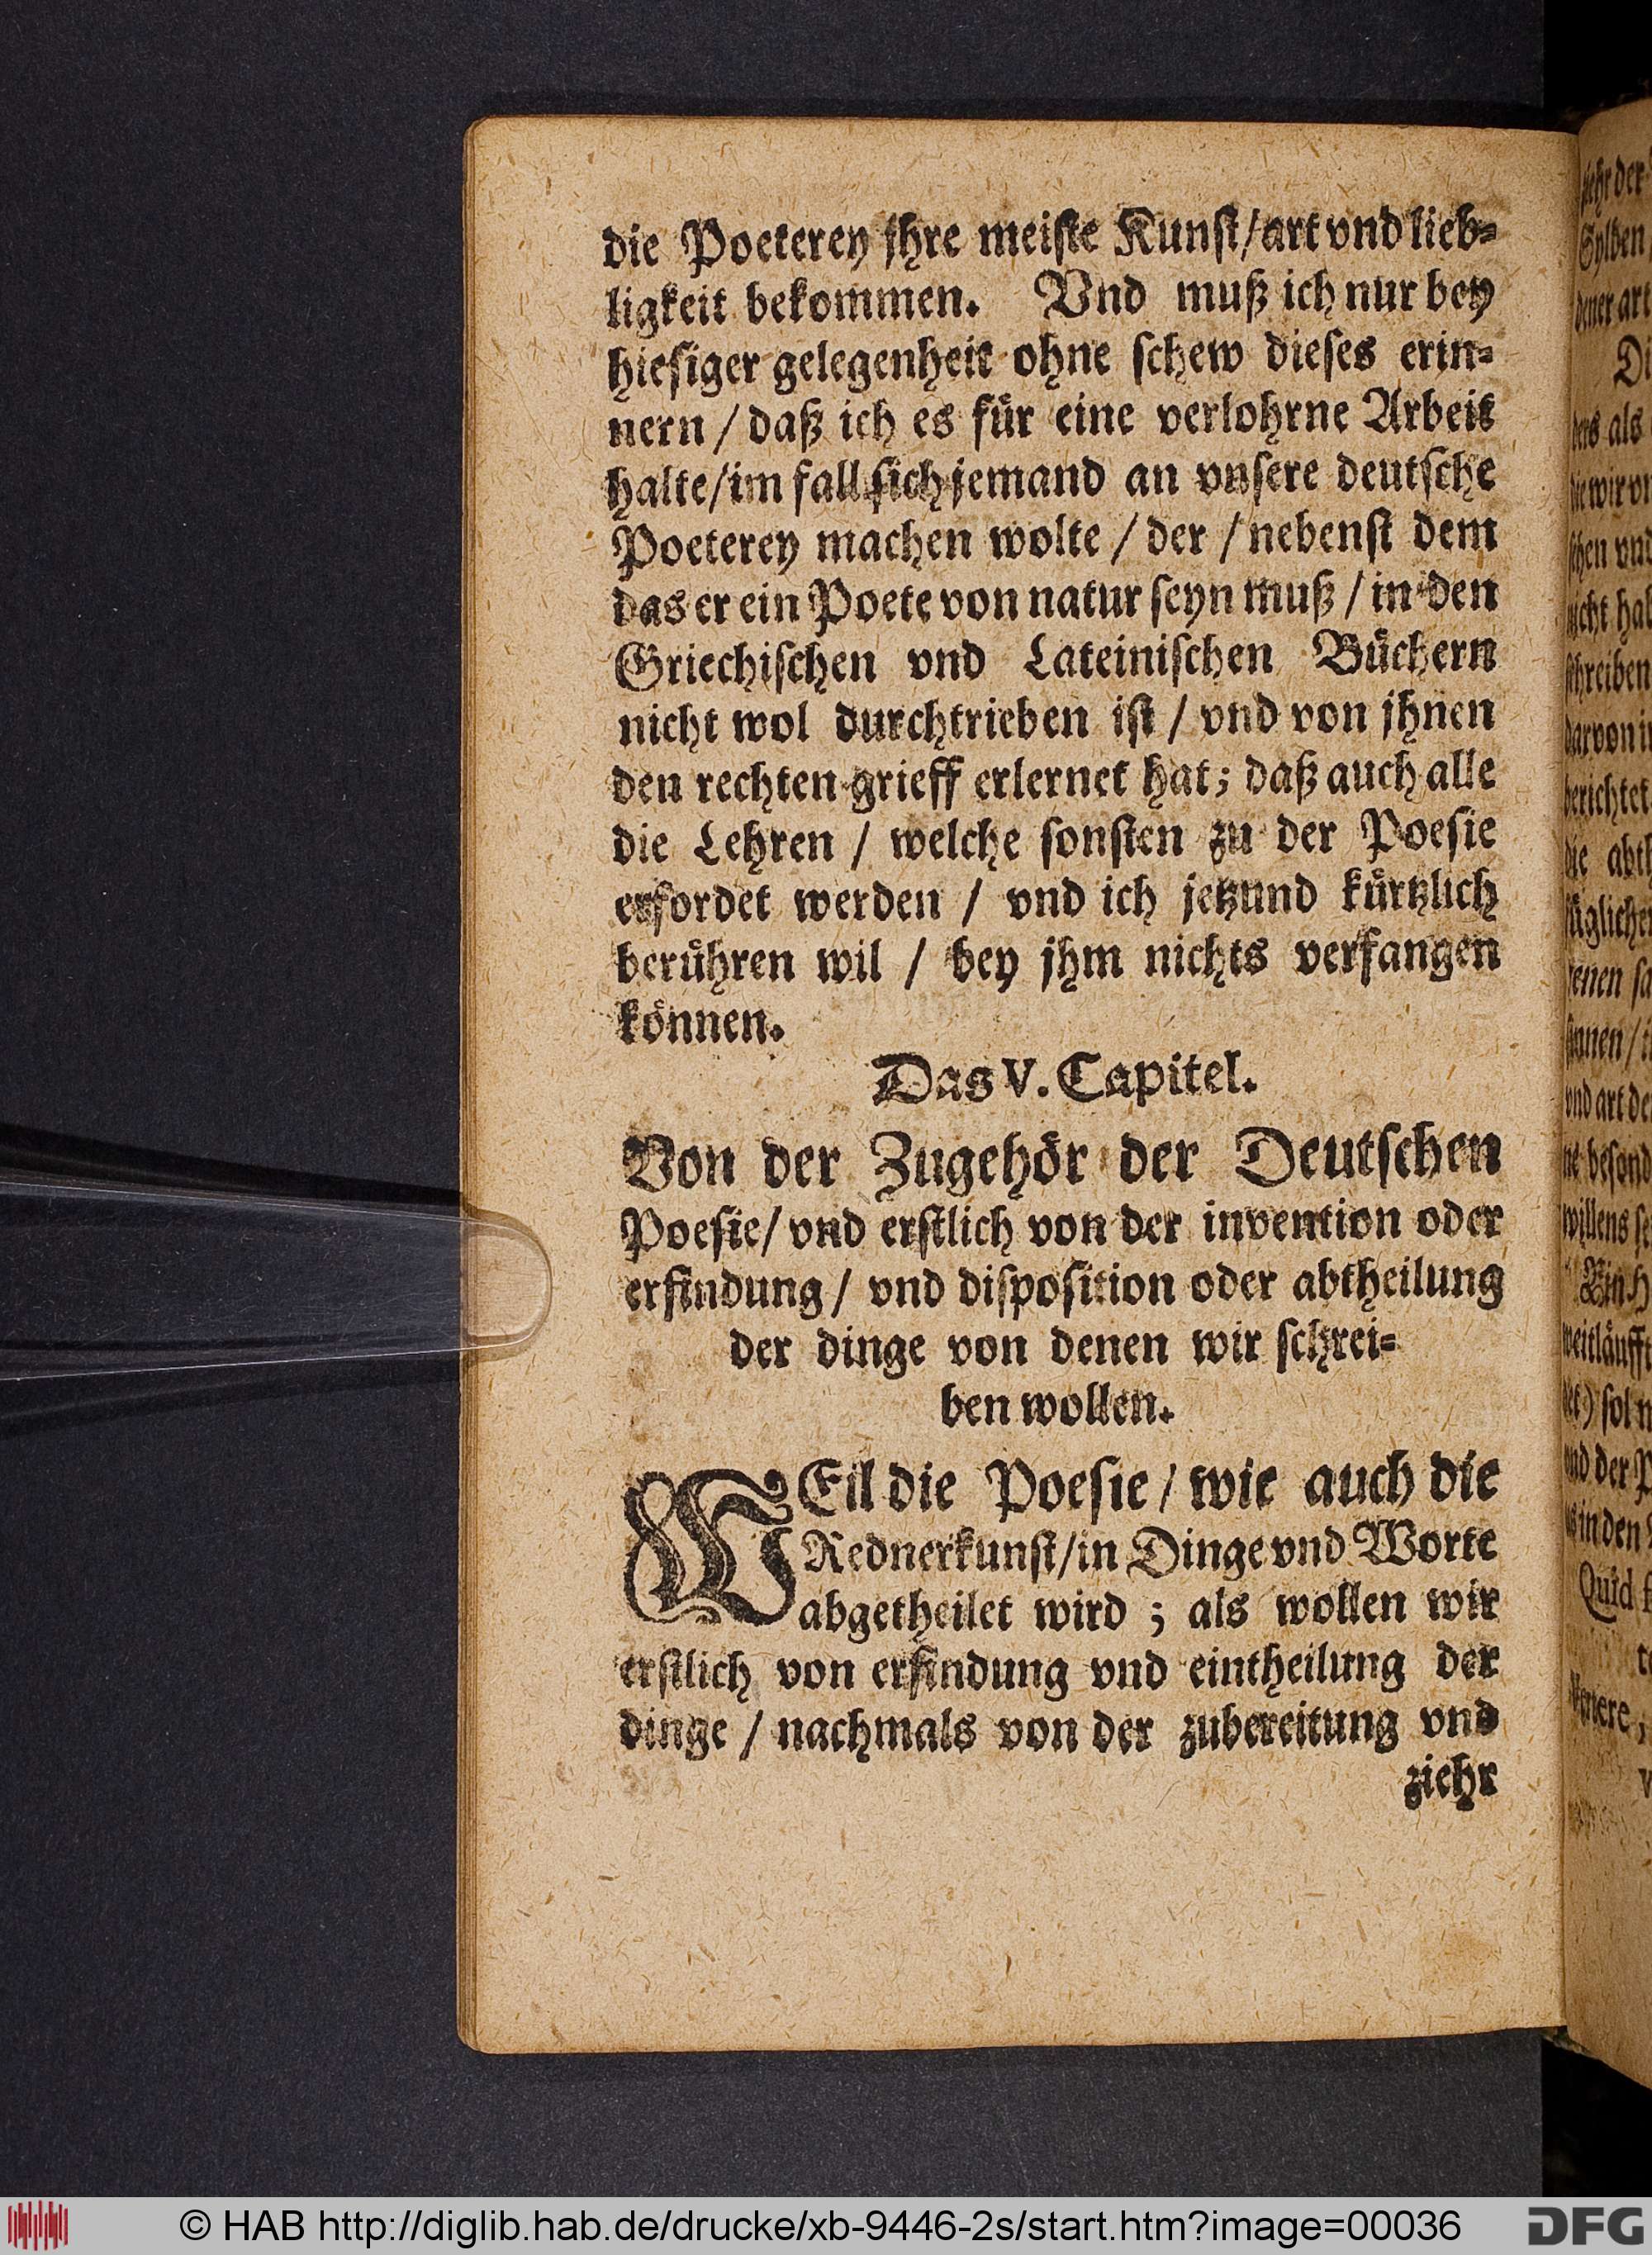 die Poeterey jhre meiste Kunst/art vnd lieb=
ligkeit bekommen. Vnd muß ich nur bey
hiesiger gelegenheit ohne schew dieses erin=
nern / daß ich es für eine verlohrne Arbeit
halte/im fall sich jemand an vnsere deutsche
Poeterey machen wolte / der / nebenst dem
das er ein Poete von natur seyn muß / in den
Griechischen vnd Lateinischen Büchern
nicht wol durchtrieben ist / vnd von jhnen
den rechten grieff erlernet hat; daß auch alle
die Lehren / welche sonsten zu der Poesie
erfordet werden / vnd ich jetzund kürtzlich
berühren wil / bey jhm nichts verfangen
können.
Das V. Capitel.
Von der Zugehör der Deutschen
Poesie/ vnd erstlich von der invention oder
erfindung / vnd disposition oder abtheilung
der dinge von denen wir schrei=
ben wollen.
WEil die Poesie / wie auch die
Rednerkunst/in Dinge vnd Worte
abgetheilet wird ; als wollen wir
erstlich von erfindung vnd eintheilung der
dinge / nachmals von der zubereitung vnd
ziehr
ziehr der
Sylben
dener art
Di
ders als
die wir vn
schen vnd
nicht hab
schreiben
darvon in
berichtet
die abth
füglichen
jenen sa
sinnen / i
vnd art de
ne besond
willens se
Ein H
weitläufft
tet) sol n
vnd der P
es in den
Quid s
te
Venere,
v
© HAB http://diglib.hab.de/drucke/xb-9446-2s/start.htm?image=00036
DFG